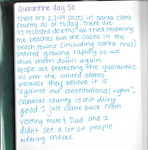 Quarantine day 50
There are 2,244 cases in Santa Clara
county as of today. There are
141 recorded deaths. We tried reopening
the beaches but the cases in the
beach towns (including Santa Cruz)
started growing rapidly so we
shut them down again.
People are protesting the quarantine
all over the united states
because they believe it is
"against our constitutional rights".
Calaveras county is still doing
good. I just came back from
visiting mom & Dad and I
didn't see a lot of people
wearing masks.